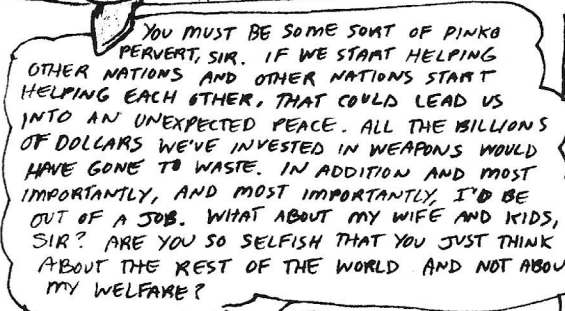 YOU MUST BE SOME SORT OF PINKO
PERVERT, SIR. IF WE START HELPING
OTHER NATIONS AND OTHER NATIONS START
HELPING EACH OTHER, THAT COULD LEAD US
INTO AN UNEXPECTED PEACE. ALL THE BILLIONS
OF DOLLARS WE'VE INVESTED IN WEAPONS WOULD
HAVE GONE TO WASTE. IN ADDITION AND MOST
IMPORTANTLY, AND MOST IMPORTANTLY, I'D BE
OUT OF A JOB. WHAT ABOUT MY WIFE AND KIDS,
SIR? ARE YOU SO SELFISH THAT YOU JUST THINK
ABOUT THE REST OF THE WORLD AND NOT ABOU
MY WELFARE?